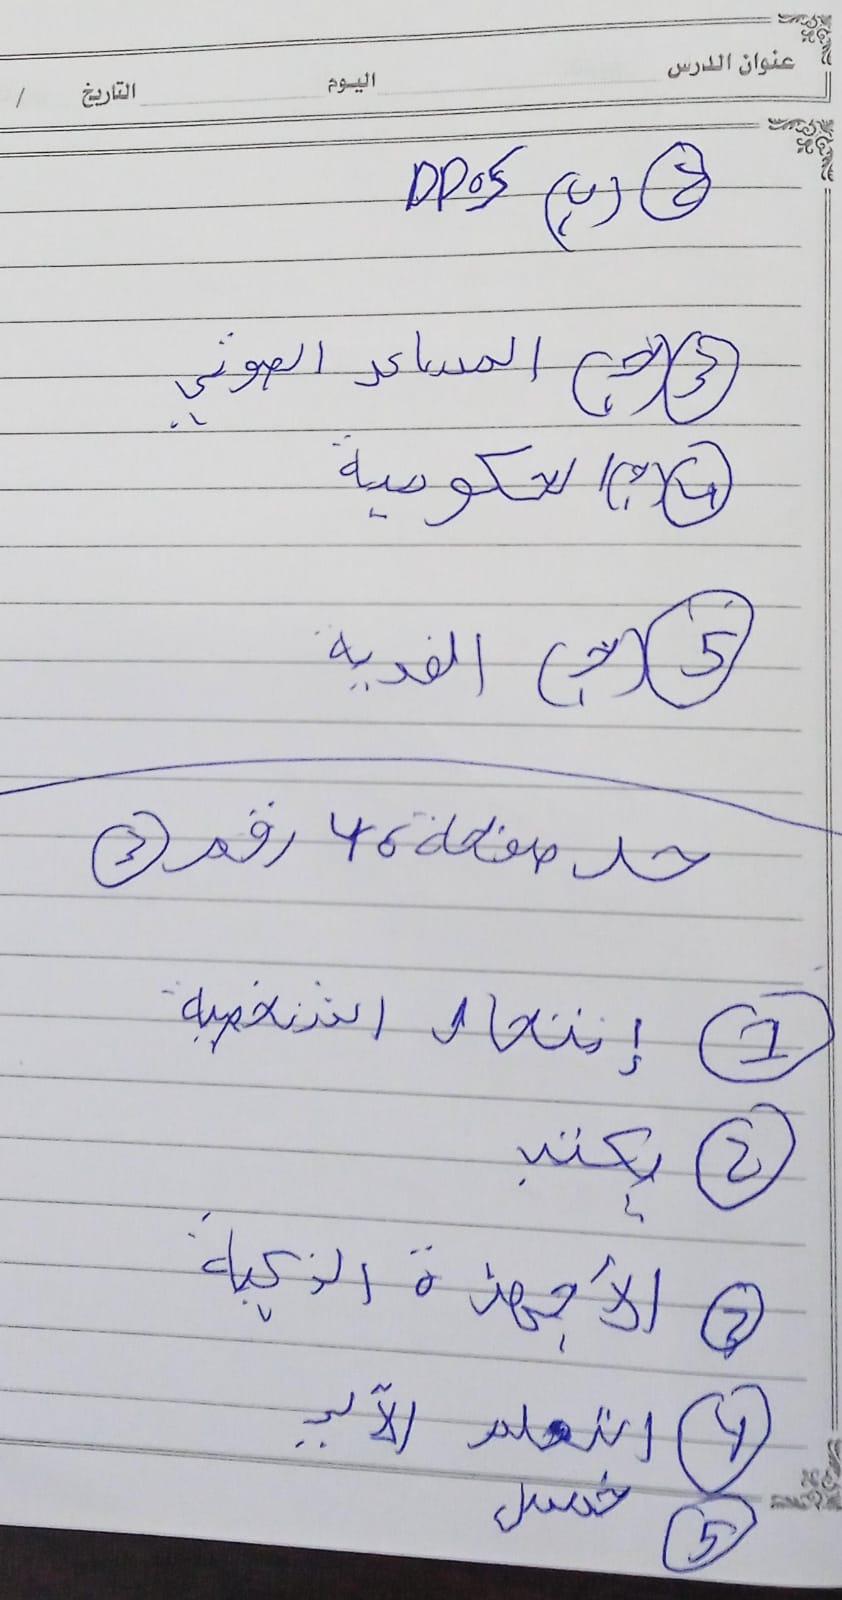 عنوان الدرس اليوم التاريخ /
2 (ب) DDoS
3 (ج) المساعد الصوتي
4 (ج) الحكومية
5 (ج) الفدية
حل صفحة 46 رقم 3
1 إنتحال الشخصية
2
3 الأجهزة الذكية
4 التعلم الآلي
5